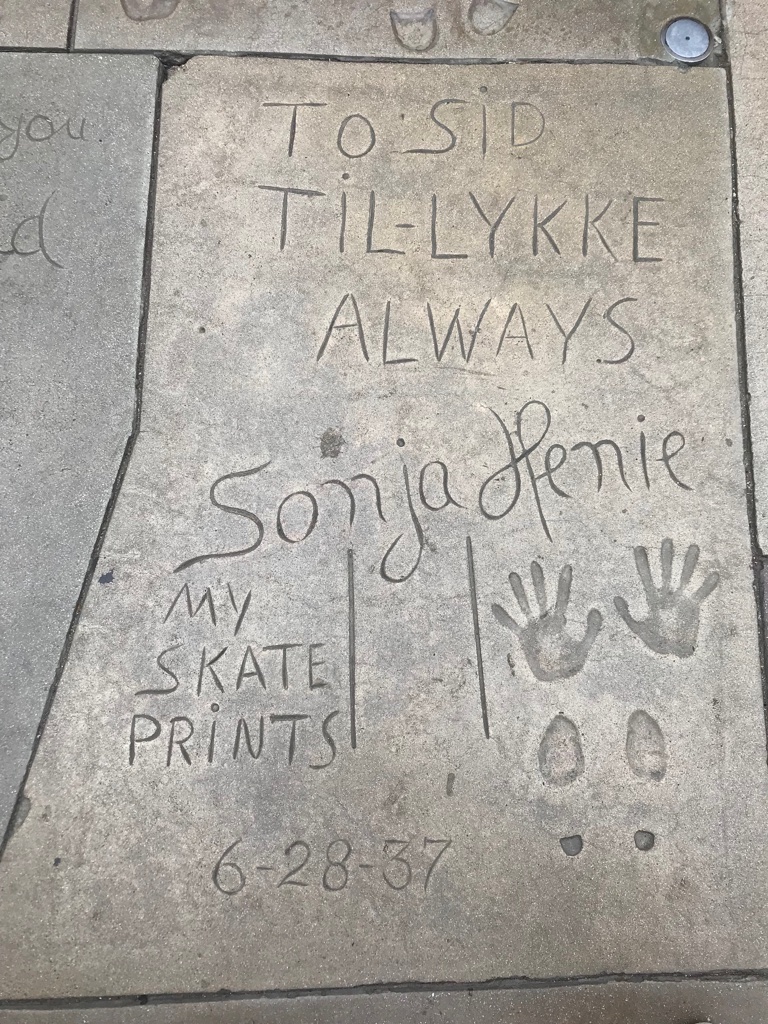 you
TO SiD
TiL-LYKKE
ALWAYS
Sonja Henie
MY
SKATE
PRiNTS
6-28-37